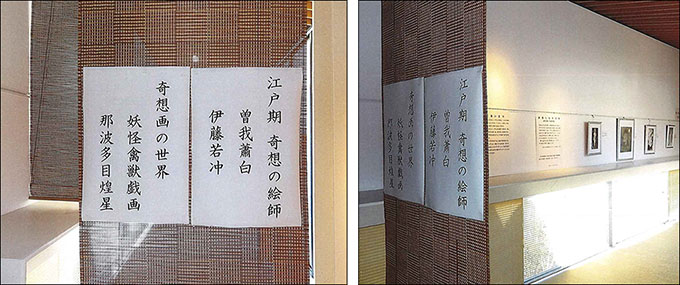 江戸期 奇想の絵師
曽我蕭白
伊藤若冲
奇想画の世界
妖怪禽獣戯画
那波多目煌星
江戸期 奇想の絵師
曽我蕭白
伊藤若冲
奇想画の世界
妖怪禽獣戯画
那波多目煌星